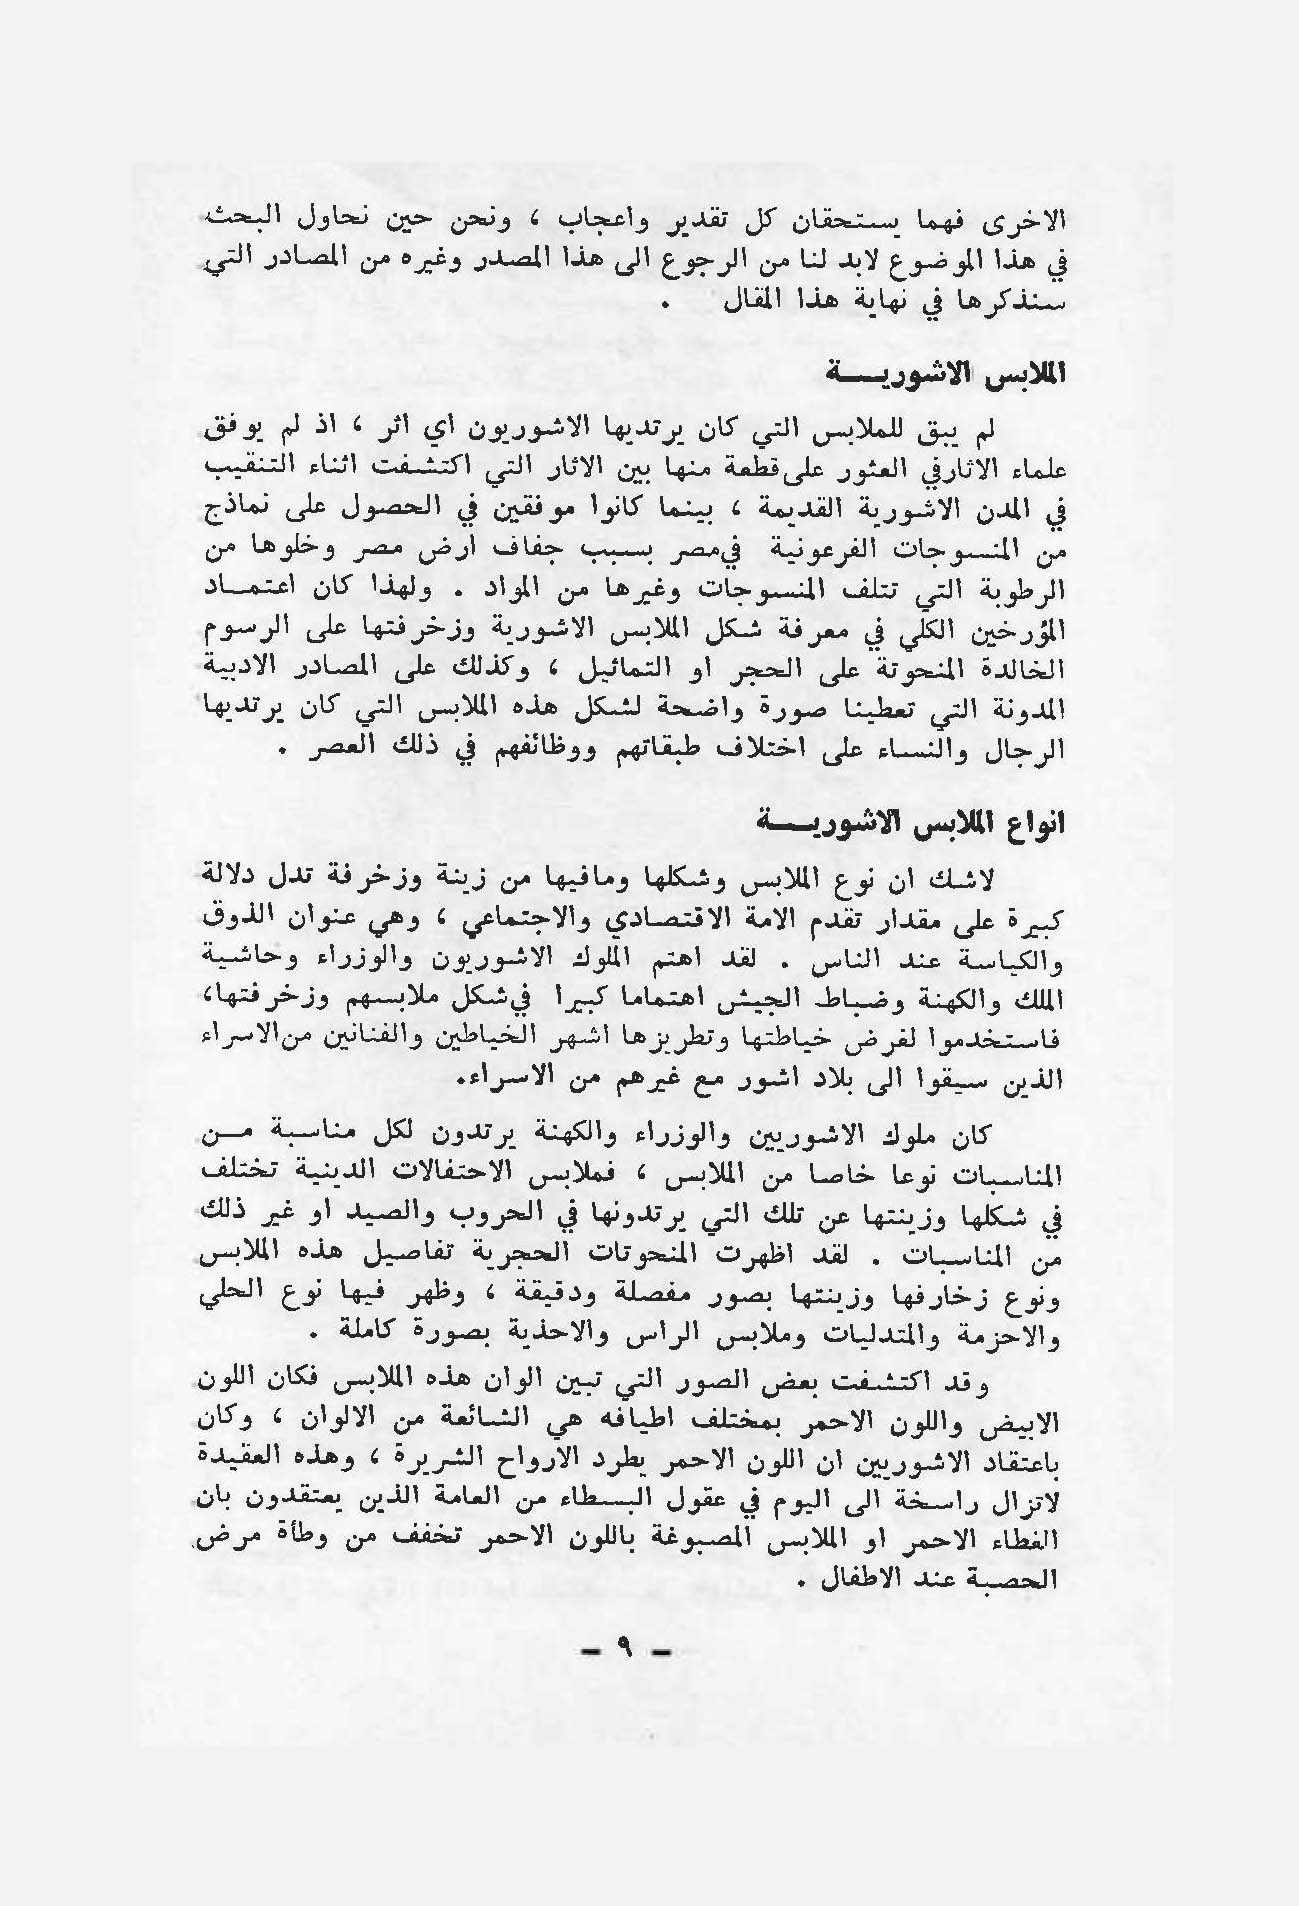 الاخرى فهما يستحقان كل تقدير واعجاب ، ونحن حين نحاول البحث
في هذا الموضوع لابد لنا من الرجوع الى هذا المصدر وغيره من المصادر التي
سنذكرها في نهاية هذا المقال .
الملابس الاشوريـــة
لم يبق للملابس التي كان يرتديها الاشوريون اي اثر ، اذ لم يوفق
علماء الاثارفي العثور على قطعة منها بين الاثار التي اكتشفت اثناء التنقيب
في المدن الاشورية القديمة ، بينما كانوا موفقين في الحصول على نماذج
من المنسوجات الفرعونية في مصر بسبب جفاف ارض مصر وخلوها من
الرطوبة التي تتلف المنسوجات وغيرها من المواد . ولهذا كان اعتمــاد
المؤرخين الكلي في معرفة شكل الملابس الاشورية وزخرفتها على الرسوم
الخالدة المنحوتة على الحجر او التماثيل ، وكذلك على المصادر الادبية
المدونة التي تعطينا صورة واضحة لشكل هذه الملابس التي كان يرتديها
الرجال والنساء على اختلاف طبقاتهم ووظائفهم في ذلك العصر .
انواع الملابس الاشوريـــة
لاشك ان نوع الملابس وشكلها ومافيها من زينة وزخرفة تدل دلالة
كبيرة على مقدار تقدم الامة الاقتصادي والاجتماعي ، وهي عنوان الذوق
والكياسة عند الناس . لقد اهتم الملوك الاشوريون والوزراء وحاشية
الملك والكهنة وضباط الجيش اهتماما كبيرا في شكل ملابسهم وزخرفتها،
فاستخدموا لغرض خياطتها وتطريزها اشهر الخياطين والفنانين من الاسراء
الذين سيقوا الى بلاد اشور مع غيرهم من الاسراء.
كان ملوك الاشوريين والوزراء والكهنة يرتدون لكل مناسبة مــن
المناسبات نوعا خاصا من الملابس ، فملابس الاحتفالات الدينية تختلف
في شكلها وزينتها عن تلك التي يرتدونها في الحروب والصيد او غير ذلك
من المناسبات . لقد اظهرت المنحوتات الحجرية تفاصيل هذه الملابس
ونوع زخارفها وزينتها بصور مفصلة ودقيقة ، وظهر فيها نوع الحلي
والاحزمة والمتدليات وملابس الراس والاحذية بصورة كاملة .
وقد اكتشفت بعض الصور التي تبين الوان هذه الملابس فكان اللون
الابيض واللون الاحمر بمختلف اطيافه هي الشائعة من الالوان ، وكان
باعتقاد الاشوريين ان اللون الاحمر يطرد الارواح الشريرة ، وهذه العقيدة
لاتزال راسخة الى اليوم في عقول البسطاء من العامة الذين يعتقدون بان
الغطاء الاحمر او الملابس المصبوغة باللون الاحمر تخفف من وطأة مرض
الحصبة عند الاطفال .
– ٩ –